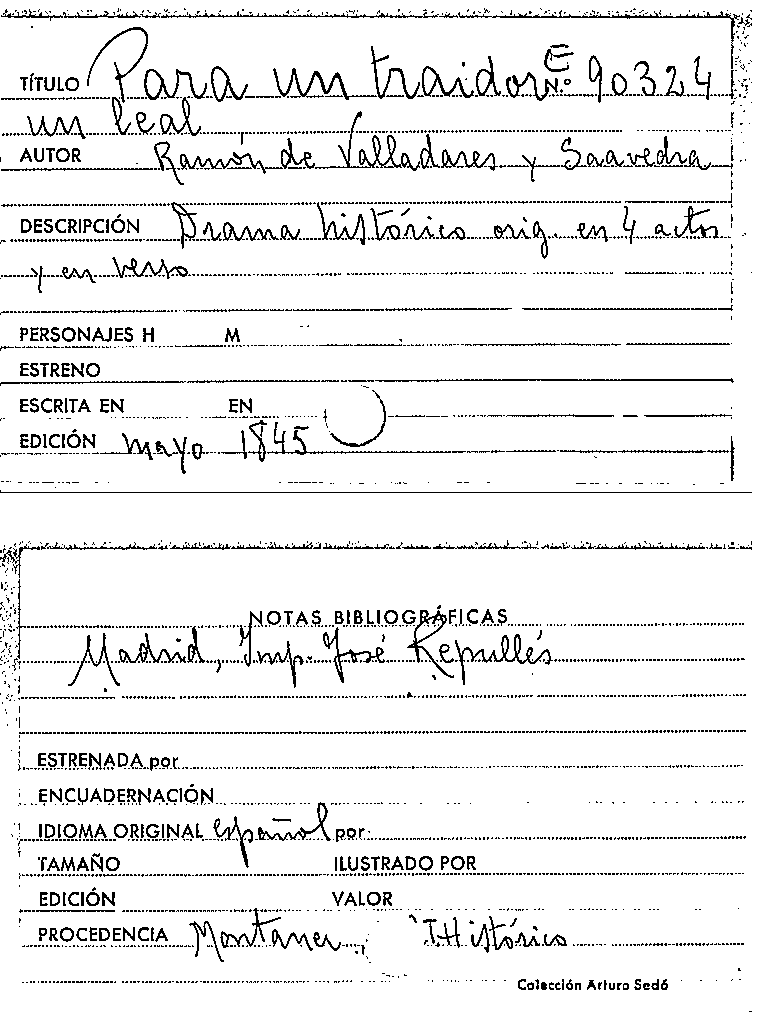 TÍTULO Para un traidor E Nº 90324
un leal
AUTOR Ramón de Valladares y Saavedra
DESCRIPCIÓN Drama histórico orig. en 4 actos
y en verso
PERSONAJES H M
ESTRENO
ESCRITA EN EN
EDICIÓN mayo 1845
NOTAS BIBLIOGRÁFICAS
Madrid, Imp. José Repullés
ESTRENADA por
ENCUADERNACIÓN
IDIOMA ORIGINAL español por
TAMAÑO ILUSTRADO POR
EDICIÓN VALOR
PROCEDENCIA Montaner, T. Histórico
Colección Arturo Sedó